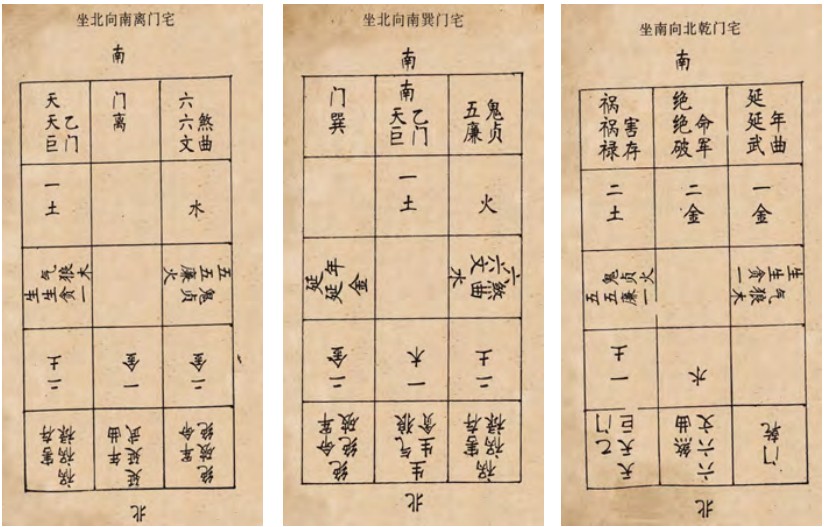 坐北向南离门宅
南
天
天乙
巨门
门
离
六
六煞
文曲
一
土
水
生
生气
贪狼
一木
五
五鬼
廉贞
火
二
土
一
金
二
金
祸
祸害
禄存
延
延年
武曲
绝
绝命
破军
北
坐北向南巽门宅
南
门
巽
南
天乙
巨门
五鬼
廉贞
一
土
火
延
延年
金
六
六煞
文曲
水
二
金
一
木
二
土
绝
绝命
破军
生
生气
贪狼
祸
祸害
禄存
北
坐南向北乾门宅
南
祸
祸害
禄存
绝
绝命
破军
延
延年
武曲
二
土
二
金
一
金
五
五鬼
廉贞
一火
生
生气
贪狼
一木
一
土
水
天
天乙
巨门
六
六煞
文曲
门
乾
北